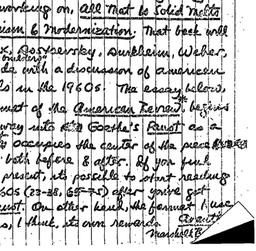 working on, All That Is Solid Melts
ism & Modernization. That book will
x, Dostoevsky, Durkheim, Weber,
de with a discussion of american
ls in the 1960s. The essay below,
mat of the American Review, begins
way into Goethe's Faust as a
occupies the center of the piece
both before & after. If you find
present, it's possible to start reading
60s (23-38, 65-75) after you've got
ust. On other hand, the format I use
s, I think, its own rewards.
Avanti
Marshall B